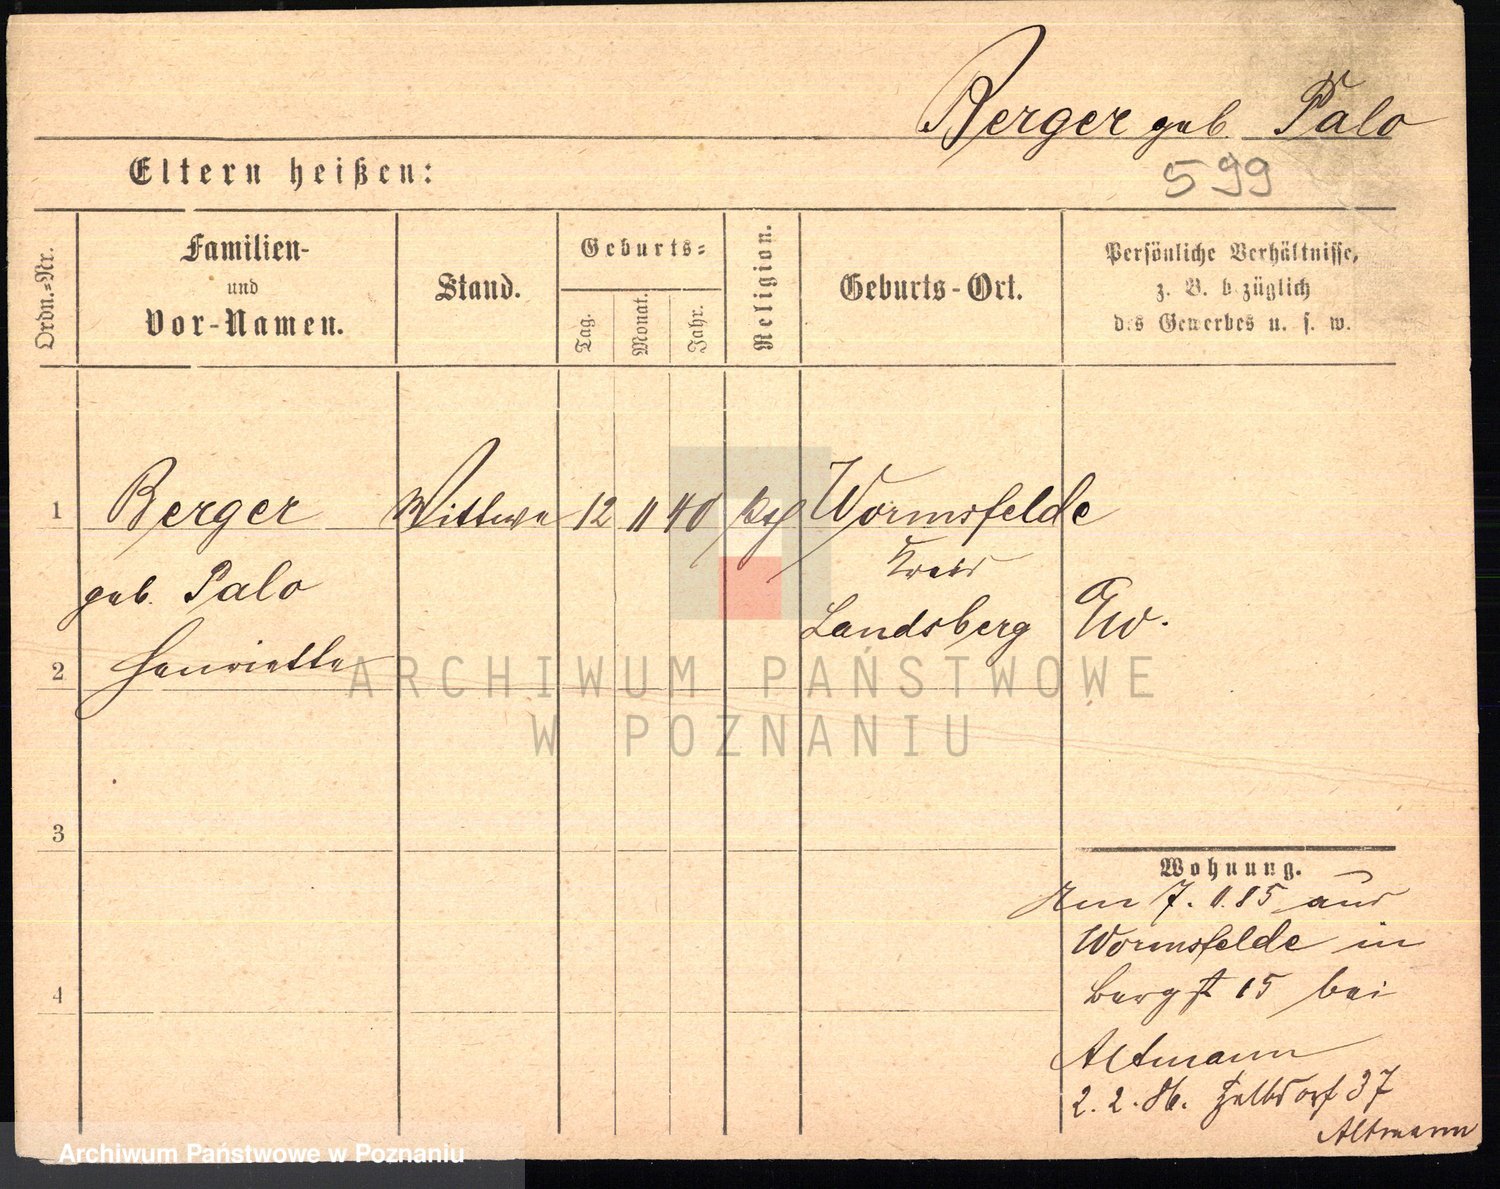 Berger geb. Palo
Eltern heißen:
599
Ordn.=Nr.
Familien-
und
Vor-Namen.
Stand.
Geburts=
Tag.
Monat.
Jahr.
Religion.
Geburts-Ort.
Persönliche Verhältnisse,
z. B. bezüglich
des Gewerbes u. s. w.
1 Berger Wittwe 12 11 40 Wormsfelde
Kreis
geb. Palo Landsberg
2 Henriette
3
4
Wohnung.
Am 7. 11. 85 aus
Wormsfelde in
Bergstr 15 bei
Altmann
2. 2. 86. 37
Altmann
ARCHIWUM PAŃSTWOWE
W POZNANIU
Archiwum Państwowe w Poznaniu